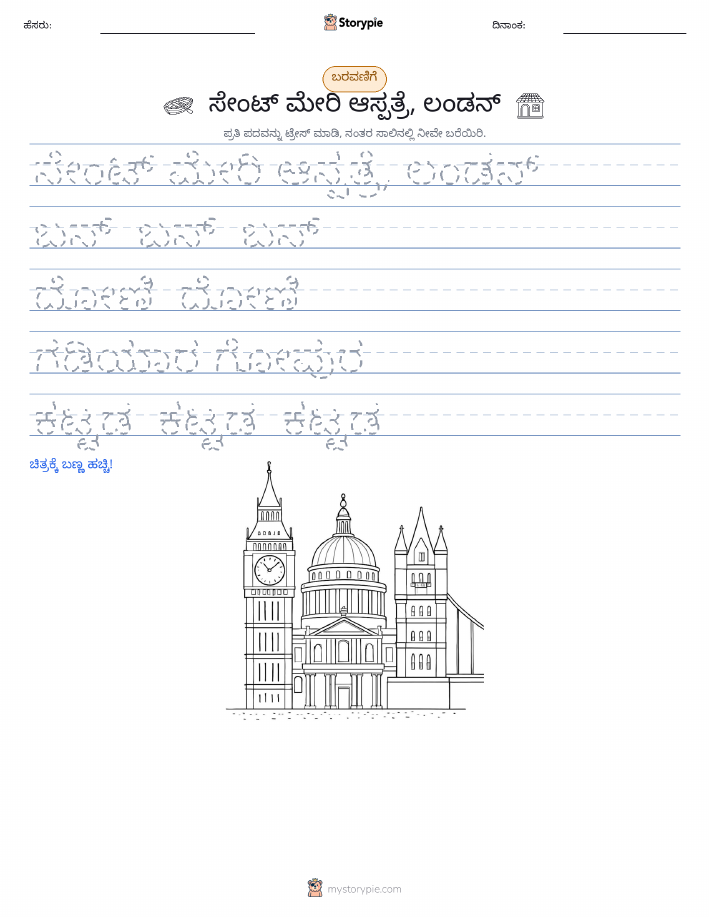 ಹೆಸರು:
Storypie
ದಿನಾಂಕ:
ಬರವಣಿಗೆ
ಸೇಂಟ್ ಮೇರಿ ಆಸ್ಪತ್ರೆ, ಲಂಡನ್
ಪ್ರತಿ ಪದವನ್ನು ಟ್ರೇಸ್ ಮಾಡಿ, ನಂತರ ಸಾಲಿನಲ್ಲಿ ನೀವೇ ಬರೆಯಿರಿ.
ಸೇಂಟ್ ಮೇರಿ ಆಸ್ಪತ್ರೆ, ಲಂಡನ್
ಬಸ್ ಬಸ್ ಬಸ್
ದೋಣಿ ದೋಣಿ
ಗಡಿಯಾರ ಗೋಪುರ
ಕಟ್ಟಡ ಕಟ್ಟಡ ಕಟ್ಟಡ
ಚಿತ್ರಕ್ಕೆ ಬಣ್ಣ ಹಚ್ಚಿ!
mystorypie.com